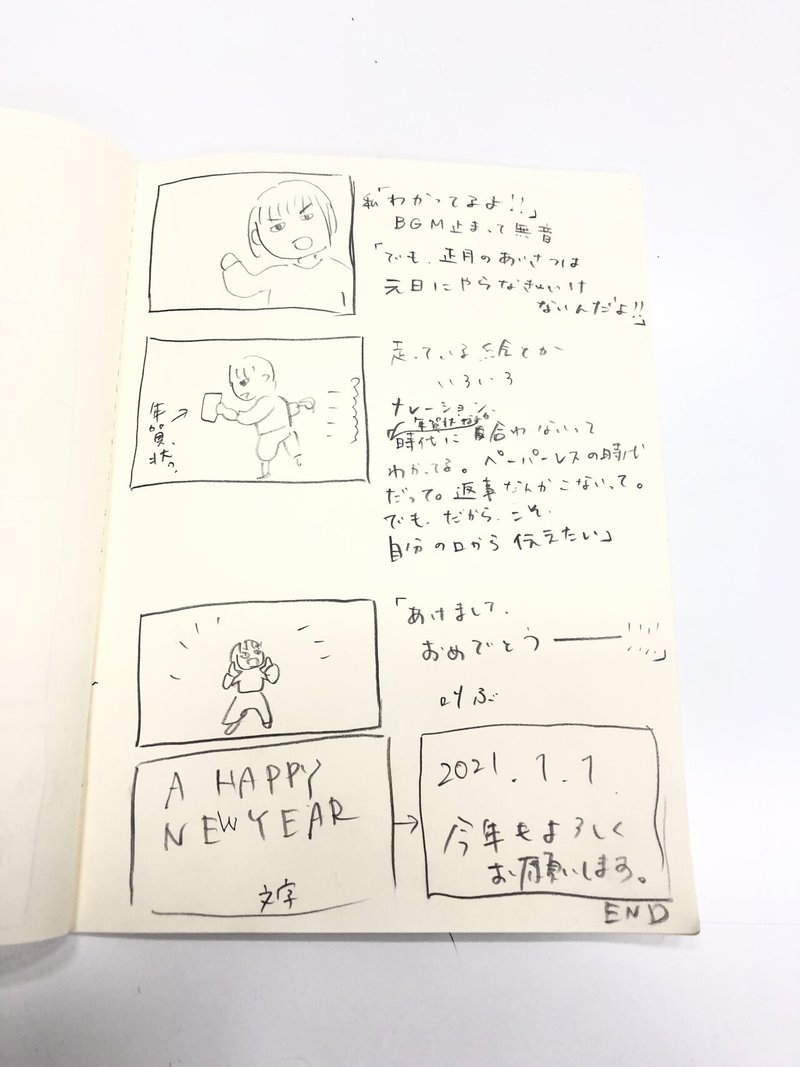 私「わかってるよ!!」
BGM止まって無音
「でも、正月のあいさつは
元日にやらなきゃいけ
ないんだよ!!」
年賀状。
走っている絵とか
いろいろ
ナレーション
「年賀状なんか
時代に合わないって
わかってる。ペーパーレスの時代
だって。返事なんかこないって。
でも、だから、こそ、
自分の口から伝えたい」
「あけまして、
おめでとう――!!!!」
叫ぶ
A HAPPY
NEW YEAR
文字
2021.1.1.
今年もよろしく
お願いします。
END